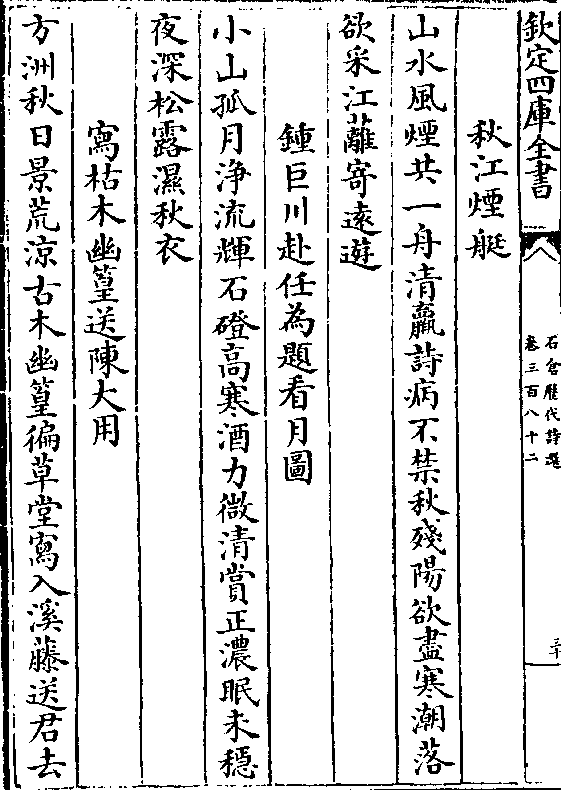 欽定四庫全書
石倉歷代詩選
卷三百八十二
秋江煙艇
山水風煙共一舟清羸詩病不禁秋殘陽欲盡寒潮落
欲采江蘺寄遠遊
鍾巨川赴任為題看月圖
小山孤月浄流輝石磴高寒酒力微清賞正濃眠未穩
夜深松露濕秋衣
寫枯木幽篁送陳大用
方洲秋日景荒凉古木幽篁徧草堂寫入溪藤送君去